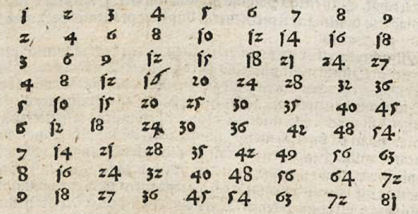 1 2 3 4 5 6 7 8 9
2 4 6 8 10 12 14 16 18
3 6 9 12 15 18 21 24 27
4 8 12 16 20 24 28 32 36
5 10 15 20 25 30 35 40 45
6 12 18 24 30 36 42 48 54
7 14 21 28 35 42 49 56 63
8 16 24 32 40 48 56 64 72
9 18 27 36 45 54 63 72 81